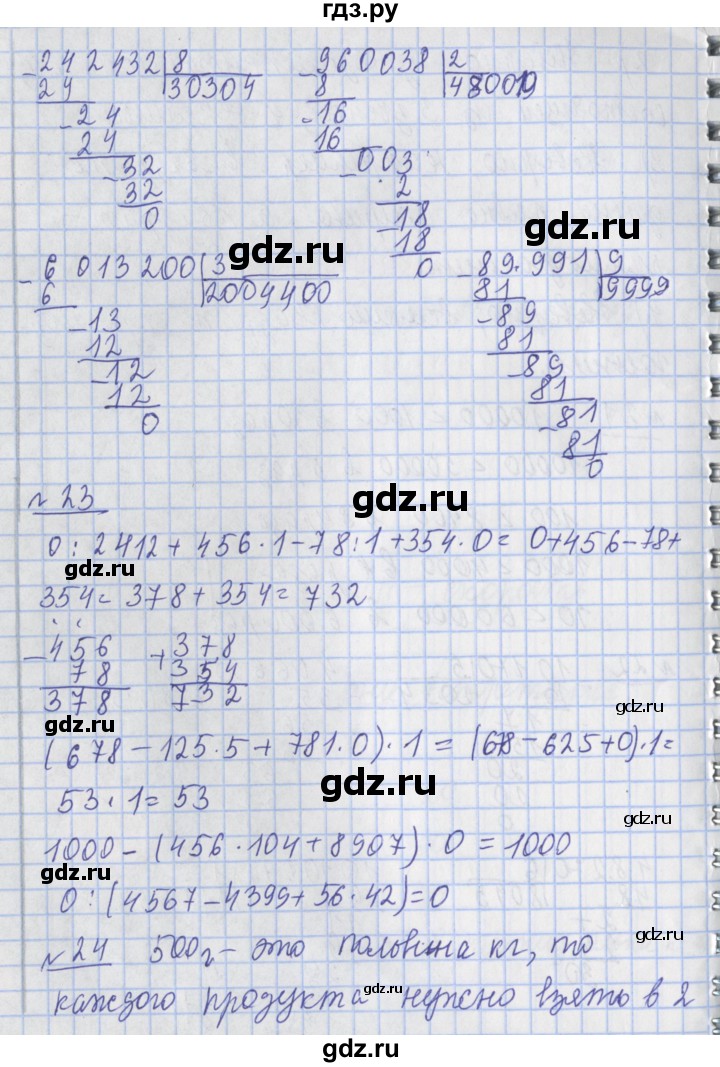 гдз.ру
- 242432 | 8
24 30304
- 24
24
- 32
32
0
- 960038 | 2
8 480019
- 16
16
- 003
2
- 18
18
0
gdz.ru
gdz.ru
- 6 013 200 | 3
6 2004400
- 13
12
- 12
12
0
- 89.991 | 9
81 9999
- 89
81
- 89
81
- 81
81
0
gdz.ru
№ 23
0 : 2412 + 456 · 1 - 78 : 1 + 354 · 0 = 0 + 456 - 78 +
354 = 378 + 354 = 732
- 456
78
378
+ 378
354
732
gdz.ru
gdz.ru
(678 - 125 · 5 + 781 · 0) · 1 = (678 - 625 + 0) · 1 =
gdz.ru
53 · 1 = 53
gdz.ru
1000 - (456 · 104 + 8907) · 0 = 1000
gdz.ru
0 : (4567 - 4399 + 56 · 42) = 0
gdz.ru
№ 24 500 г - это половина кг, то
gdz.ru
каждого продукта нужно взять в 2
gdz.ru